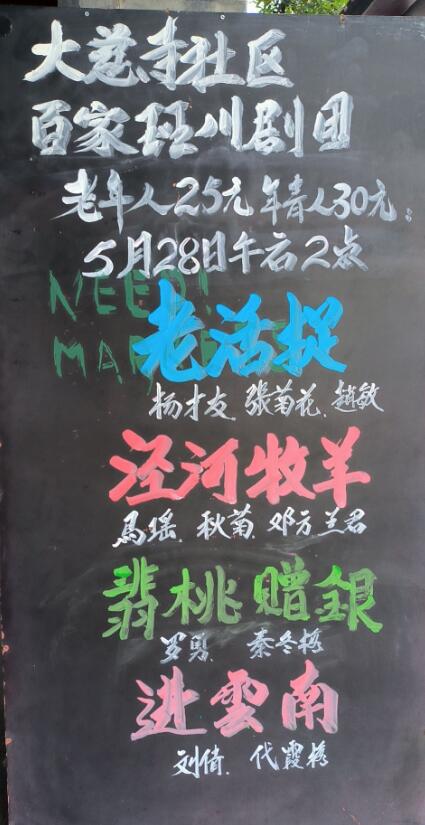 大慈寺社区
百家班川剧团
老年人25元 年青人30元:
5月28日午后2点
NEED!
MAR
老活捉
杨才友、張菊花、趙敏
泾河牧羊
馬瑶、秋菊、邓方兰君
翡桃赠銀
罗勇、秦冬梅
进雲南
刘倩、代霞梅